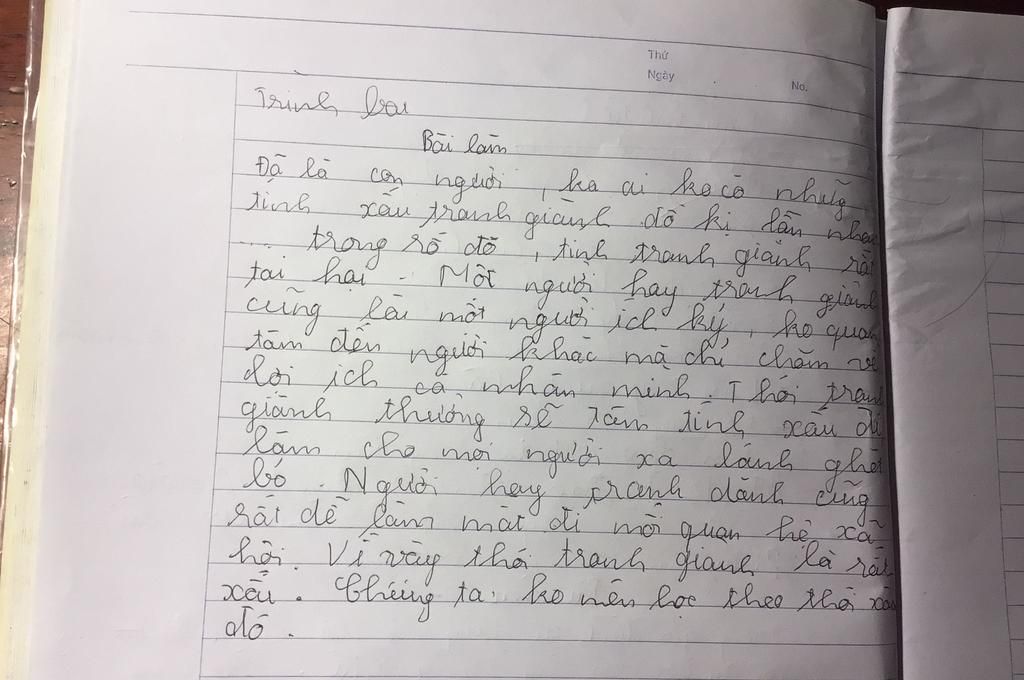 Thứ
Ngày
No.
Trình bày
Bài làm
Đã là con người, ko ai ko có những
tính xấu tranh giành đố kị lẫn nhau
... trong số đó, tính tranh giành rất
tai hại. Một người hay tranh giành
cũng là một người ích kỷ, ko quan
tâm đến người khác mà chỉ chăm về
lợi ích cá nhân mình. Thói tranh
giành thường sẽ tâm tính xấu đi
làm cho mọi người xa lánh ghét
bỏ. Người hay tranh dành cũng
rất dễ làm mất đi mối quan hệ xã
hội. Vì vậy thói tranh giành là rất
xấu. Chúng ta ko nên học theo thói xấu
đó.